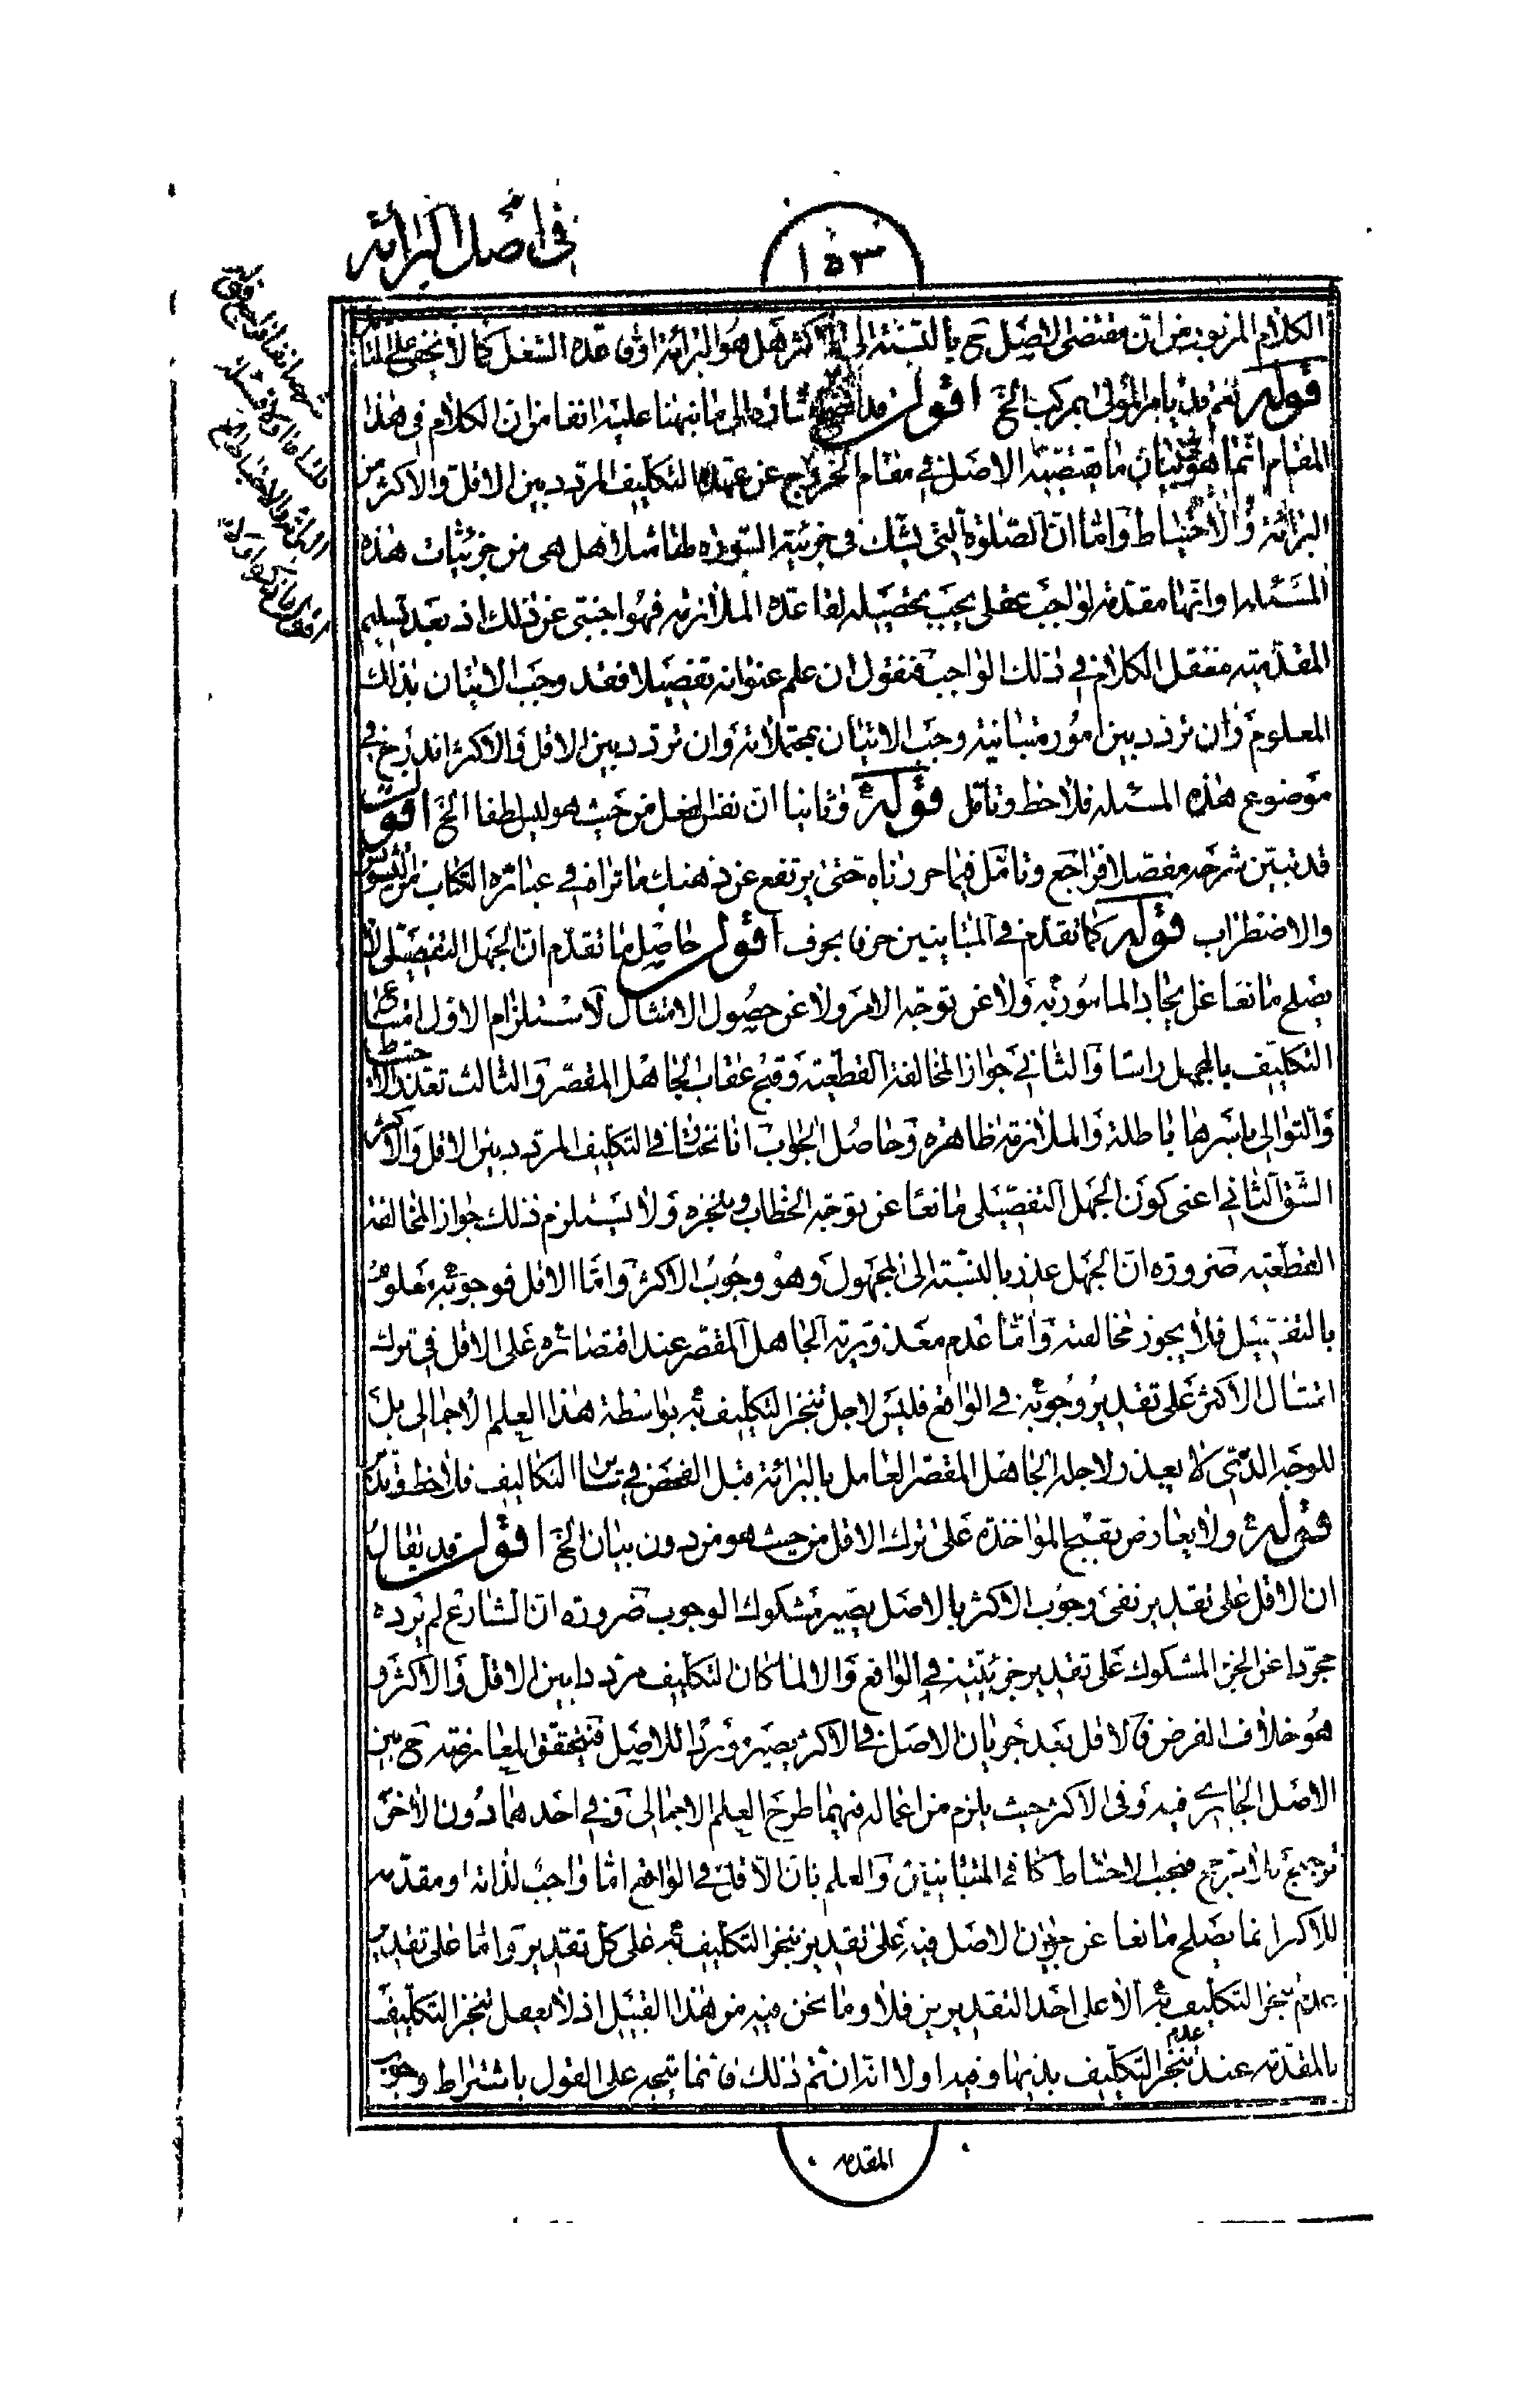 في اصل البرائة
١٥٣
الكلام المزبور من ان مقتضى الاصل ح بالنسبة الى الاكثر هل هو البرائة او قاعدة الشغل كما لا يخفى على المتامل
قوله نعم قد يامر المولى بمركب الخ اقول هذا اشارة الى ما نبهنا عليه انفا من ان الكلام في هذا
المقام انما هو لبيان ما يقتضيه الاصل في مقام الخروج عن عهدة التكليف المردد بين الاقل والاكثر من
البرائة والاحتياط واما ان الصلوة التي يشك في جزئية السورة لها مثلا هل هي من جزئيات هذه
المسئلة او انها مقدمة لواجب عقلى يجب تحصيله لقاعدة الملازمة فهو اجنبى عن ذلك اذ بعد تسليم
المقدمية ننقل الكلام في ذلك الواجب فنقول ان علم عنوانه تفصيلا فقد وجب الاتيان بذلك
المعلوم وان تردد بين امور متباينة وجب الاتيان بمحتملاته وان تردد بين الاقل والاكثر اندرج في
موضوع هذه المسئلة فلاحظ وتامل قوله وثانيا ان نفس الفعل من حيث هو ليس لطفا الخ اقول
قد تبين شرحه مفصلا فراجع وتامل فيما حررناه حتى يرتفع عن ذهنك ما تراه في عبائره الكتاب من التشويش
والاضطراب قوله كما تقدم في المتباينين حرفا بحرف اقول حاصل ما تقدم ان الجهل التفصيلى لا
يصلح مانعا عن ايجاد المامور به ولا عن توجه الامر ولا عن حصول الامتثال لاستلزام الاول امتناع
التكليف بالمجمل راسا والثاني جواز المخالفة القطعية وقبح عقاب الجاهل المقصر والثالث تعذر الاحتياط
والتوالى باسرها باطلة والملازمة ظاهرة وحاصل الجواب انا نختار في التكليف المردد بين الاقل والاكثر
الشق الثاني اعنى كون الجهل التفصيلى مانعا عن توجه الخطاب وتنجزه ولا يستلزم ذلك جواز المخالفة
القطعية ضرورة ان الجهل عذر بالنسبة الى المجهول وهو وجوب الاكثر واما الاقل فوجوبه معلوم
بالتفصيل فلا يجوز مخالفته واما عدم معذورية الجاهل المقصر عند اقتصاره على الاقل في ترك
امتثال الاكثر على تقدير وجوبه في الواقع فليس لاجل تنجز التكليف به بواسطة هذا العلم الاجمالى بل
للوجه الذى لا يعذر لاجله الجاهل المقصر العامل بالبرائة قبل الفحص في سائر التكاليف فلاحظ وتدبر
قوله ولا يعارض بقبح المؤاخذة على ترك الاقل من حيث هو من دون بيان الخ اقول قد يقال
ان الاقل على تقدير نفى وجوب الاكثر بالاصل يصير مشكوك الوجوب ضرورة ان الشارع لم يرده
مجردا عن الجزء المشكوك على تقدير جزئيته في الواقع والا لما كان التكليف مرددا بين الاقل والاكثر و
هو خلاف الفرض فالاقل بعد جريان الاصل في الاكثر يصير موردا للاصل فيتحقق المعارضة ح بين
الاصل الجارى فيه وفى الاكثر حيث يلزم من اعماله فيهما طرح العلم الاجمالى وفي احدهما دون الاخر
ترجيح بلا مرجح فيجب الاحتياط كما في المتباينين والعلم بان الاقل في الواقع اما واجب لذاته او مقدمة
للاكثر انما يصلح مانعا عن جريان الاصل فيه على تقدير تنجز التكليف به على كل تقدير واما على تقدير
عدم تنجز التكليف به الا على احد التقديرين فلا وما نحن فيه من هذا القبيل اذ لا يعقل تنجز التكليف
بالمقدمة عند عدم تنجز التكليف بذيها وفيه اولا انه ان تم ذلك فانما يتجه على القول باشتراط وجوب
المقدمة